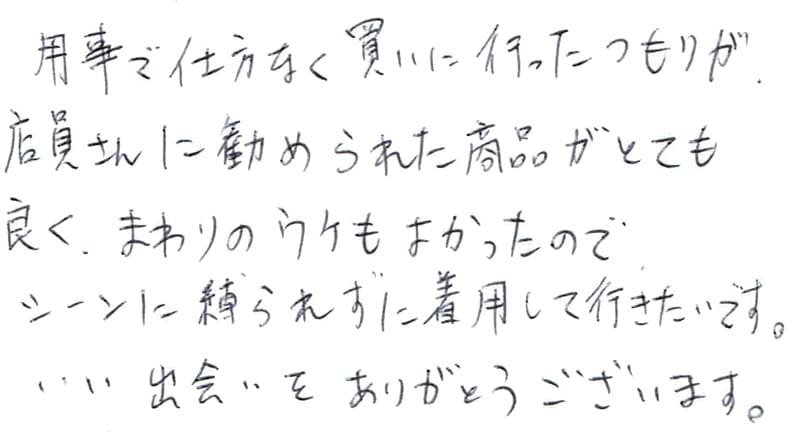 用事で仕方なく買いに行ったつもりが、
店員さんに勧められた商品がとても
良く、まわりのウケもよかったので
シーンに縛られずに着用して行きたいです。
いい出会いをありがとうございます。